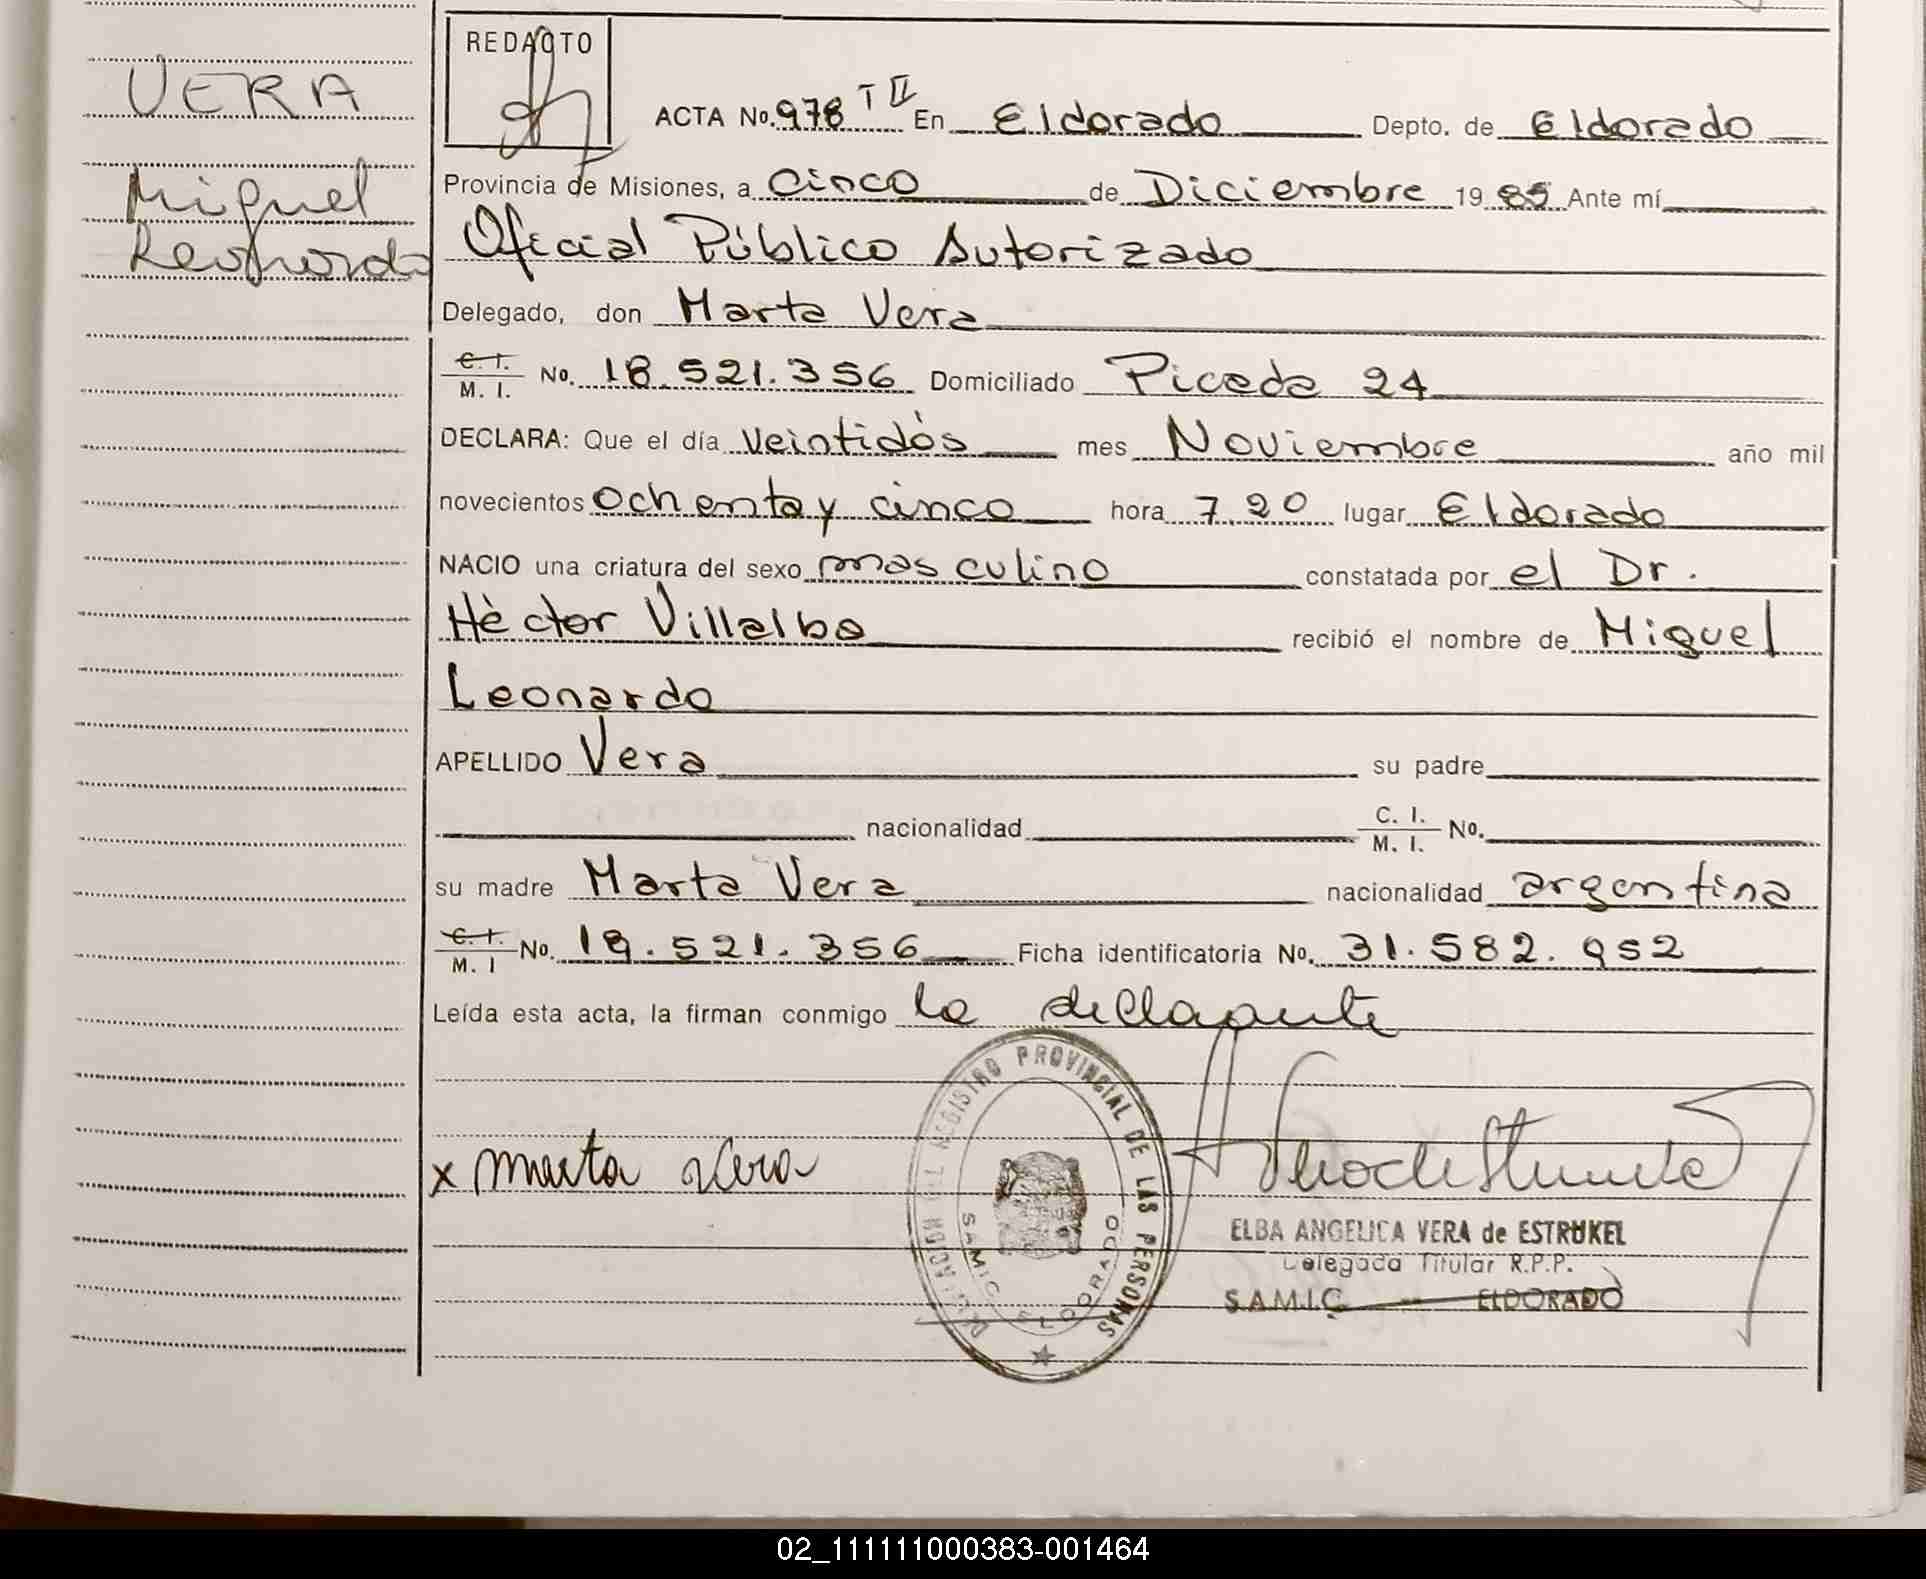 VERA
Miguel
Leonardo
REDACTO
ACTA No. 978 T II En Eldorado Depto. de Eldorado
Provincia de Misiones, a cinco de Diciembre 1985 Ante mí
Oficial Público Autorizado
Delegado, don Marta Vera
C. I. M. I. No. 18.521.356 Domiciliado Picada 24
DECLARA: Que el día veintidós mes Noviembre año mil
novecientos ochenta y cinco hora 7,20 lugar Eldorado
NACIO una criatura del sexo masculino constatada por el Dr.
Hèctor Villalba recibió el nombre de Miguel
Leonardo
APELLIDO Vera su padre
nacionalidad C. I. M. I. No.
su madre Marta Vera nacionalidad argentina
C. I. M. I No. 18.521.356 Ficha identificatoria No. 31.582.952
Leída esta acta, la firman conmigo la
x Marta Vera
DELEGACION DEL REGISTRO PROVINCIAL DE LAS PERSONAS
SAMIC ELDORADO
ELBA ANGELICA VERA de ESTRUKEL
Delegada Titular R.P.P.
S.A.M.I.C. ELDORADO
02_111111000383-001464